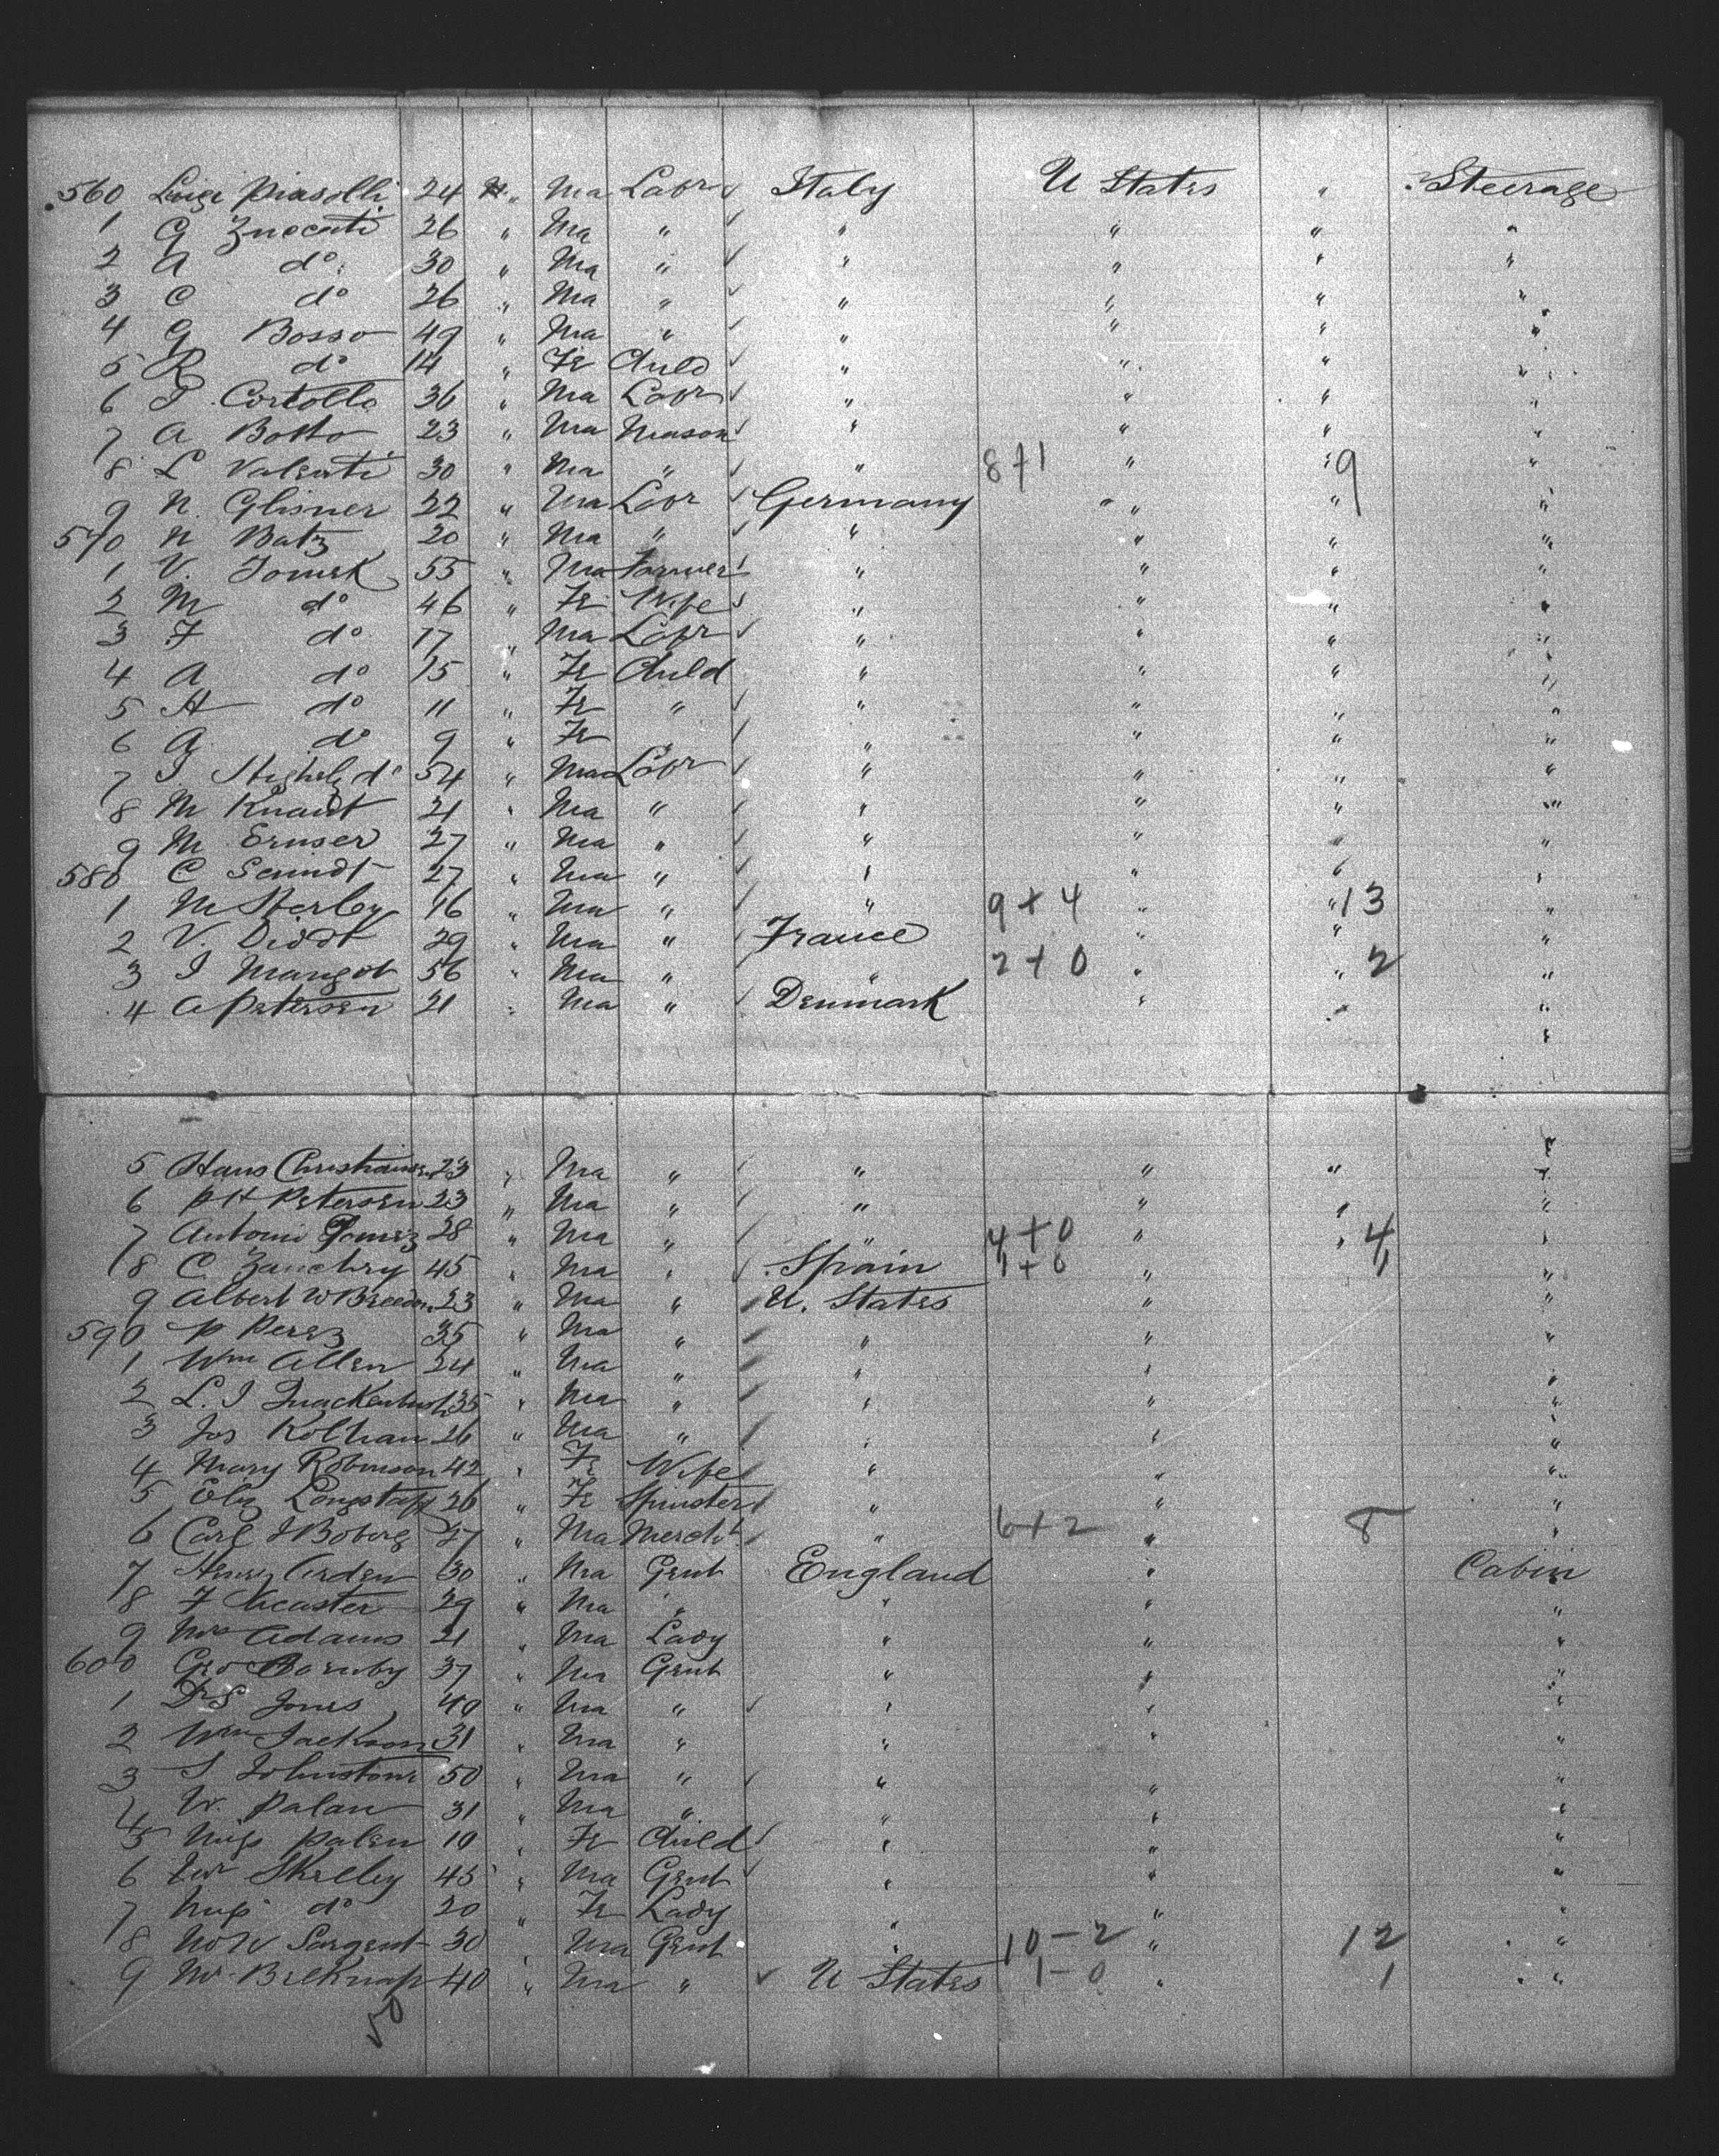 560 Luigi Piasolli 24 " Ma Labr ✓ Italy U States " Steerage
1 G Zuccati 26 " Ma " ✓ " " " "
2 A do 30 " Ma " ✓ " " " "
3 C do 26 " Ma " ✓ " " " "
4 G Bosso 49 " Ma " ✓ " " " "
5 R do 14 " Fe Child ✓ " " " "
6 Cortolla 36 " Ma Labr ✓ " " " "
7 A Botto 23 " Ma Mason ✓ " " " "
8 L Valenti 30 " Ma " ✓ " 8+1 " " 9 "
9 N. Glisner 22 " Ma Labr ✓ Germany " " "
570 N Batz 20 " Ma " ✓ " " " "
1 V. Tomek 55 " Ma Farmer ✓ " " " "
2 M do 46 " Fe Wife ✓ " " " "
3 F do 17 " Ma Labr ✓ " " " "
4 A do 15 " Fe Child " " " "
5 H do 11 " Fe " ✓ " " " "
6 A do 9 " Fe " ✓ " " " "
7 do 54 " Ma Labr ✓ " " " "
8 M Knaut 21 " Ma " ✓ " " " "
9 M Eruser 27 " Ma " ✓ " " " "
580 C Scmidt 27 " Ma " ✓ " " " "
1 M Sterley 16 " Ma " ✓ " 9+4 " " 13 "
2 V. Didot 29 " Ma " ✓ France " " "
3 J Mangot 56 " Ma " ✓ " 2+0 " " 2 "
4 A Petersen 21 " Ma " ✓ Denmark " " "
5 Hans Christiansen 23 " Ma " ✓ " " " "
6 P H Petersen 23 " Ma " ✓ " " " "
7 Antoni Gomez 28 " Ma " ✓ " 4+0 " " 4 "
8 C. Zanchry 45 " Ma " ✓ Spain 1+0 " 1 "
9 Albert W Breedon 23 " Ma " ✓ U. States " "
590 P Perez 35 " Ma " ✓ " " "
1 Wm Allen 24 " Ma " ✓ " "
2 L. J Quackenbush 35 " Ma " ✓ " " "
3 Jos Kolhan 26 " Ma " ✓ " " "
4 Mary Robinson 42 " Fe Wife ✓ " " "
5 Eliz Longstaff 26 " Fe Spinster ✓ " " "
6 Carl J Boberg 27 " Ma Mercht ✓ " 6+2 " 8 "
7 Henry Arden 30 " Ma Gent England " Cabin
8 F 29 " Ma " " " "
9 Mrs Adams 21 " Ma Lady " " "
600 Geo Barnby 37 " Ma Gent " " "
1 Dr S Jones 49 " Ma " ✓ " " "
2 Wm Jackson 31 " Ma " " " "
3 J Johnstone 50 " Ma " ✓ " " "
4 W. Palan 31 " Ma " " " "
5 Miss Palen 10 " Fe Child ✓ " " "
6 Mr Skelley 45 " Ma Gent ✓ " " "
7 Miss do 20 " Fe Lady " " "
8 Sargent 30 " Ma Gent " 10-2 " 12 "
9 Mr Belknap 40 " Ma " ✓ U States 1-0 " 1 "
50